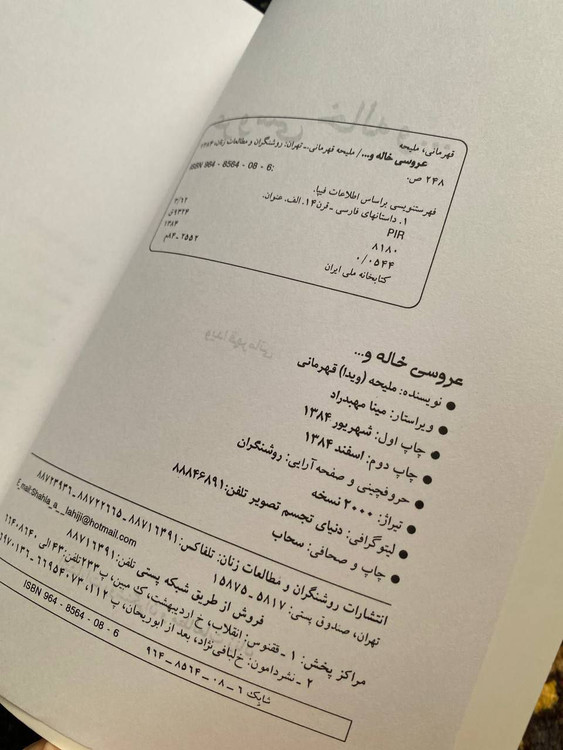 قهرمانی، ملیحه
عروسی خاله و.../ ملیحه قهرمانی.ـ تهران: روشنگران و مطالعات زنان، ۱۳۸۴
۲۴۸ ص.
ISBN 964 - 8564 - 08 - 6:
فهرستنویسی براساس اطلاعات فیپا.
۱. داستانهای فارسی ـ قرن ۱۴. الف. عنوان.
PIR ۳/۱۲
۸۱۸۰
۰/۰۵۴۴ ۱۳۸۴
کتابخانه ملی ایران ۲۵۵۲ ـ ۸۴م
عروسی خاله و...
● نویسنده: ملیحه (ویدا) قهرمانی
● ویراستار: مینا مهبدراد
● چاپ اول: شهریور ۱۳۸۴
● چاپ دوم: اسفند ۱۳۸۴
● حروفچینی و صفحه آرایی: روشنگران
● تیراژ: ۲۰۰۰ نسخه
● لیتوگرافی: دنیای تجسم تصویر تلفن: ۸۸۸۴۶۸۹۱
● چاپ و صحافی: سحاب
انتشارات روشنگران و مطالعات زنان: تلفاکس: ۸۸۷۱۶۳۹۱ ـ ۸۸۷۲۲۶۶۵ ـ ۸۸۷۲۳۹۳۶
تهران، صندوق پستی: ۵۸۱۷ ـ ۱۵۸۷۵ E_mail:Shahla_a__lahiji@hotmail.com
فروش از طریق شبکه پستی تلفن: ۸۸۷۱۶۳۹۱
مراکز پخش: ۱ ـ ققنوس: انقلاب، خ اردیبهشت، ک مبین، پ۲۳۳ تلفن: ۴۳ الی ۶۶۴۰۸۶۴۰
۲ ـ نشر دامون: خ لبافی‌نژاد، بعد از ابوریحان، پ ۱۱۲، ۶۶۹۵۴۰۷۳
شابک ۶ ـ ۰۸ ـ ۸۵۶۴ ـ ۹۶۴ ISBN 964 - 8564 - 08 - 6